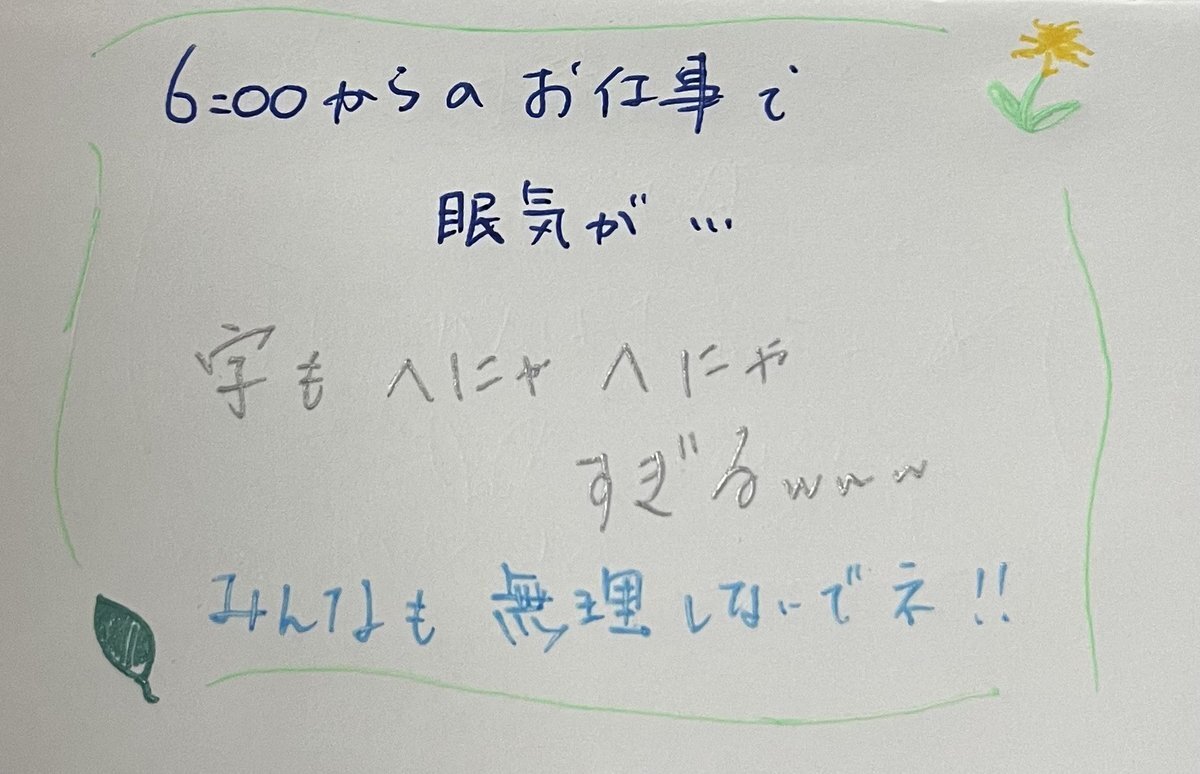 6:00からのお仕事で
眠気が…
字もへにゃへにゃ
すぎるwww
みんなも無理しないでネ!!